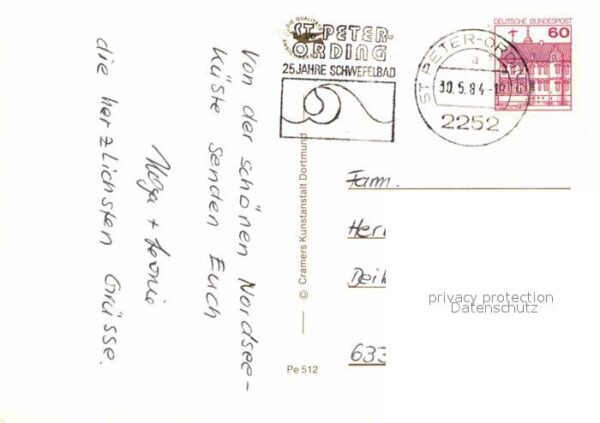 Von der schönen Nordsee-
küste senden Euch
die herzlichsten Grüsse.
© Cramers Kunstanstalt Dortmund
Pe 512
ST. PETER-
ORDING
25 JAHRE SCHWEFELBAD
ST PETER-ORDING
a
30.5.84-18
2252
DEUTSCHE BUNDESPOST
60
Fam.
633
privacy protection
Datenschutz